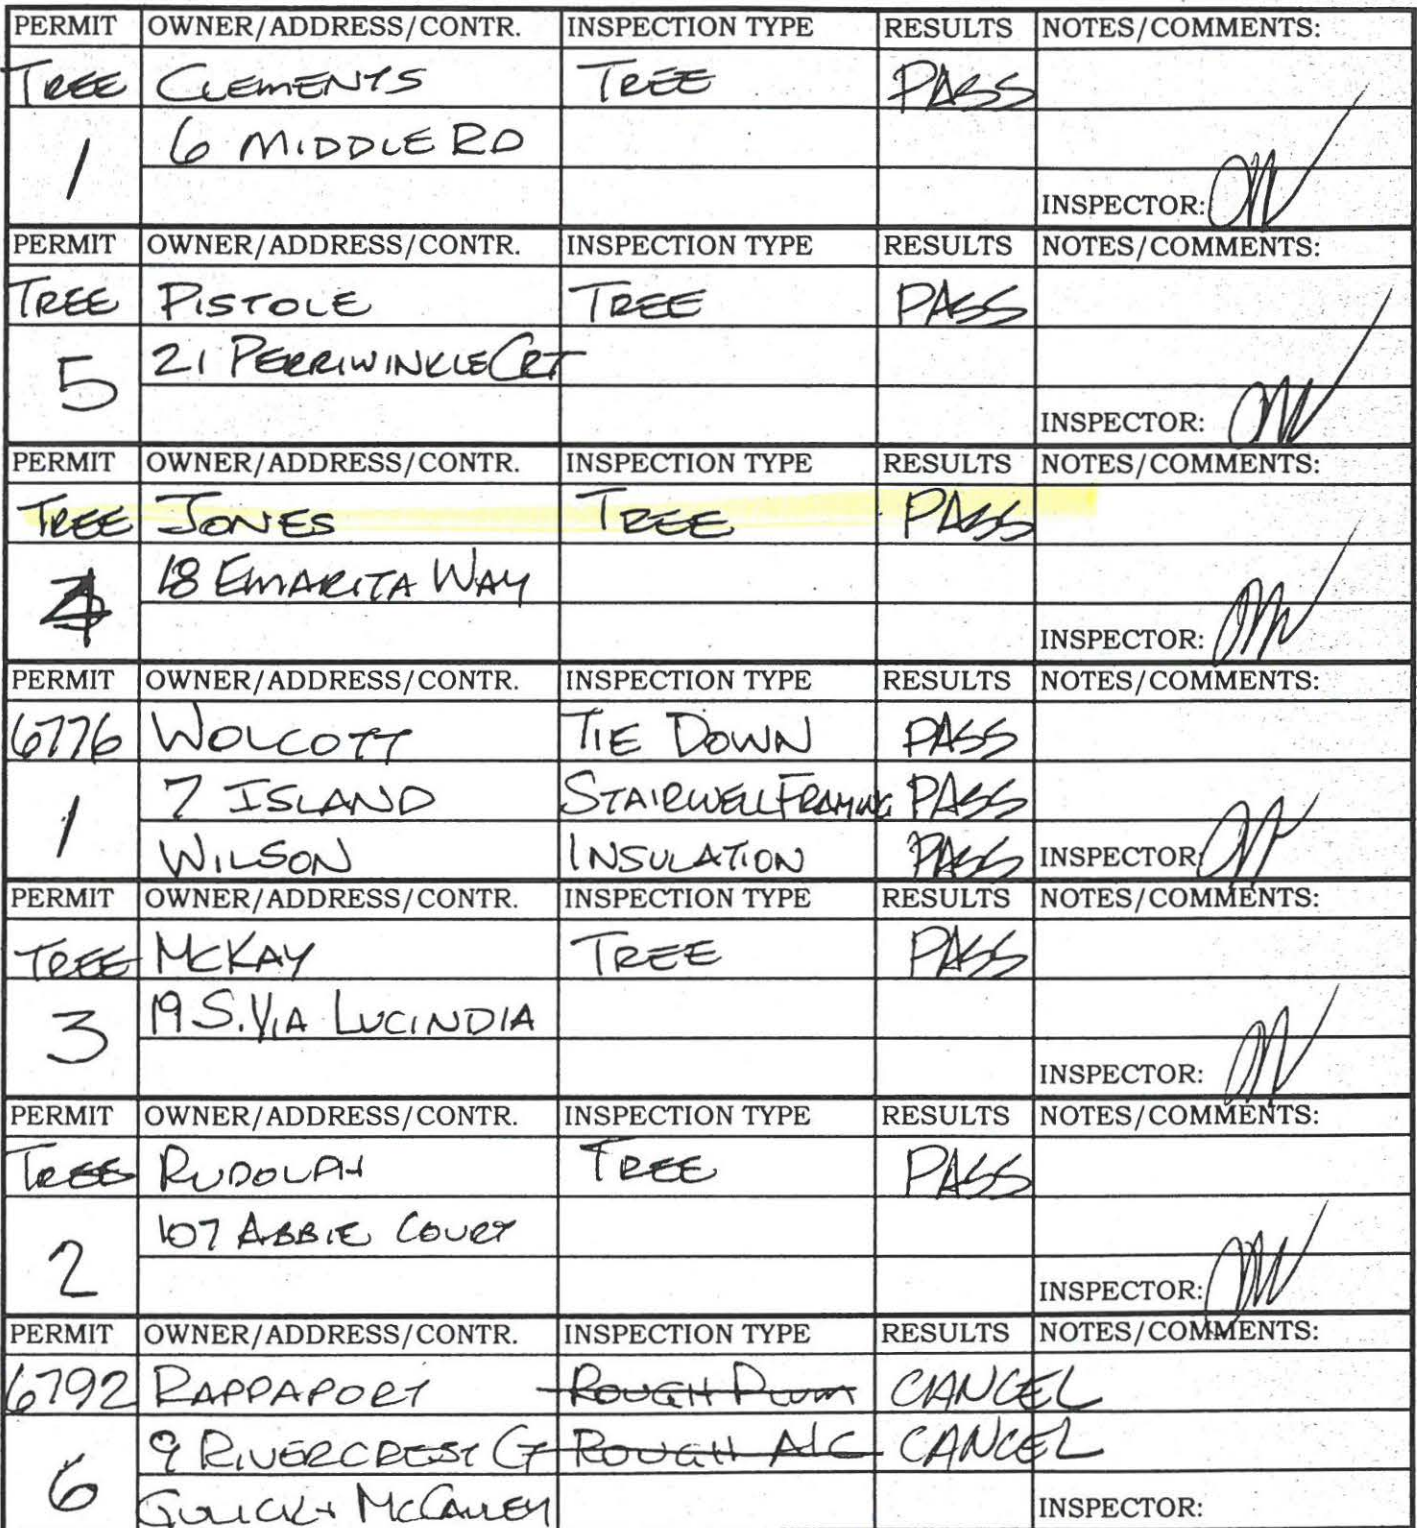 PERMIT OWNER/ADDRESS/CONTR. INSPECTION TYPE RESULTS NOTES/COMMENTS:
TREE CLEMENTS TREE PASS
1 6 MIDDLE RD
INSPECTOR:
PERMIT OWNER/ADDRESS/CONTR. INSPECTION TYPE RESULTS NOTES/COMMENTS:
TREE PISTOLE TREE PASS
5 21 PERRIWINKLE CRT
INSPECTOR:
PERMIT OWNER/ADDRESS/CONTR. INSPECTION TYPE RESULTS NOTES/COMMENTS:
TREE JONES TREE PASS
4 18 EMARITA WAY
INSPECTOR:
PERMIT OWNER/ADDRESS/CONTR. INSPECTION TYPE RESULTS NOTES/COMMENTS:
6776 WOLCOTT TIE DOWN PASS
1 7 ISLAND STAIRWELL FRAMING PASS
WILSON INSULATION PASS INSPECTOR:
PERMIT OWNER/ADDRESS/CONTR. INSPECTION TYPE RESULTS NOTES/COMMENTS:
TREE MCKAY TREE PASS
3 19 S. VIA LUCINDIA
INSPECTOR:
PERMIT OWNER/ADDRESS/CONTR. INSPECTION TYPE RESULTS NOTES/COMMENTS:
TREE RUDOLPH TREE PASS
2 107 ABBIE COURT
INSPECTOR:
PERMIT OWNER/ADDRESS/CONTR. INSPECTION TYPE RESULTS NOTES/COMMENTS:
6792 RAPPAPORT ROUGH PLUM CANCEL
6 9 RIVERCREST CT ROUGH A/C CANCEL
INSPECTOR: